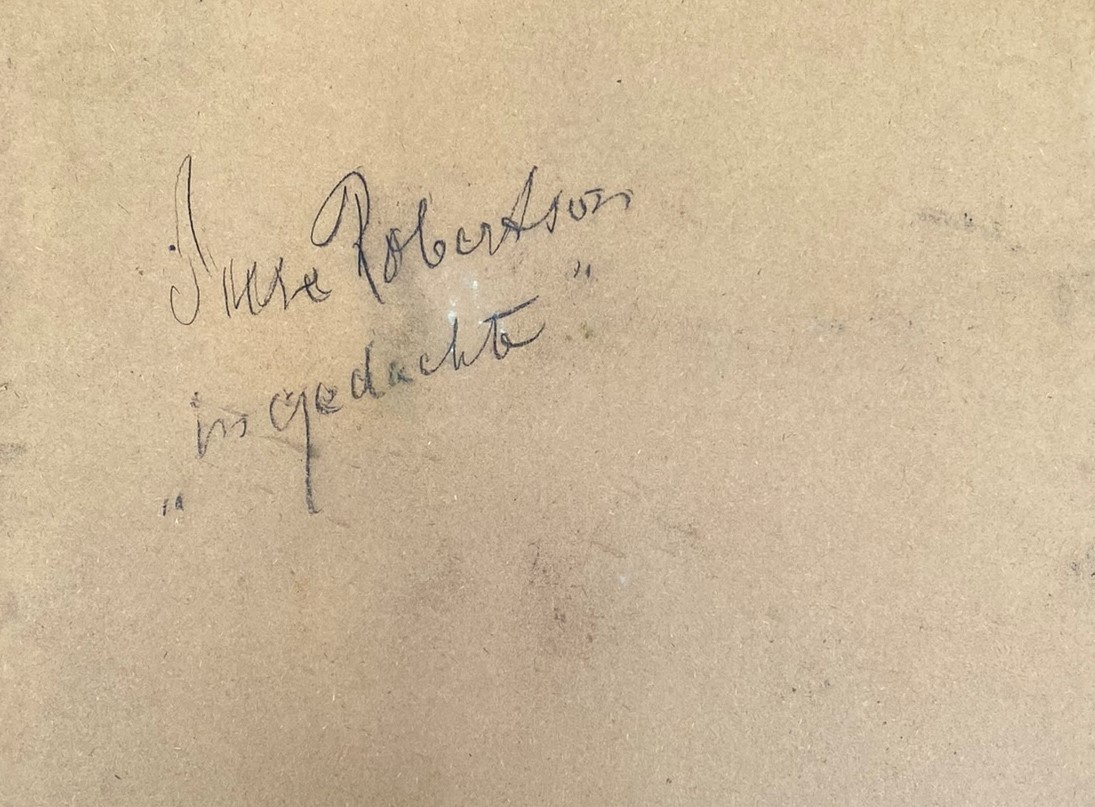 Suze Robertson
„in gedachte"